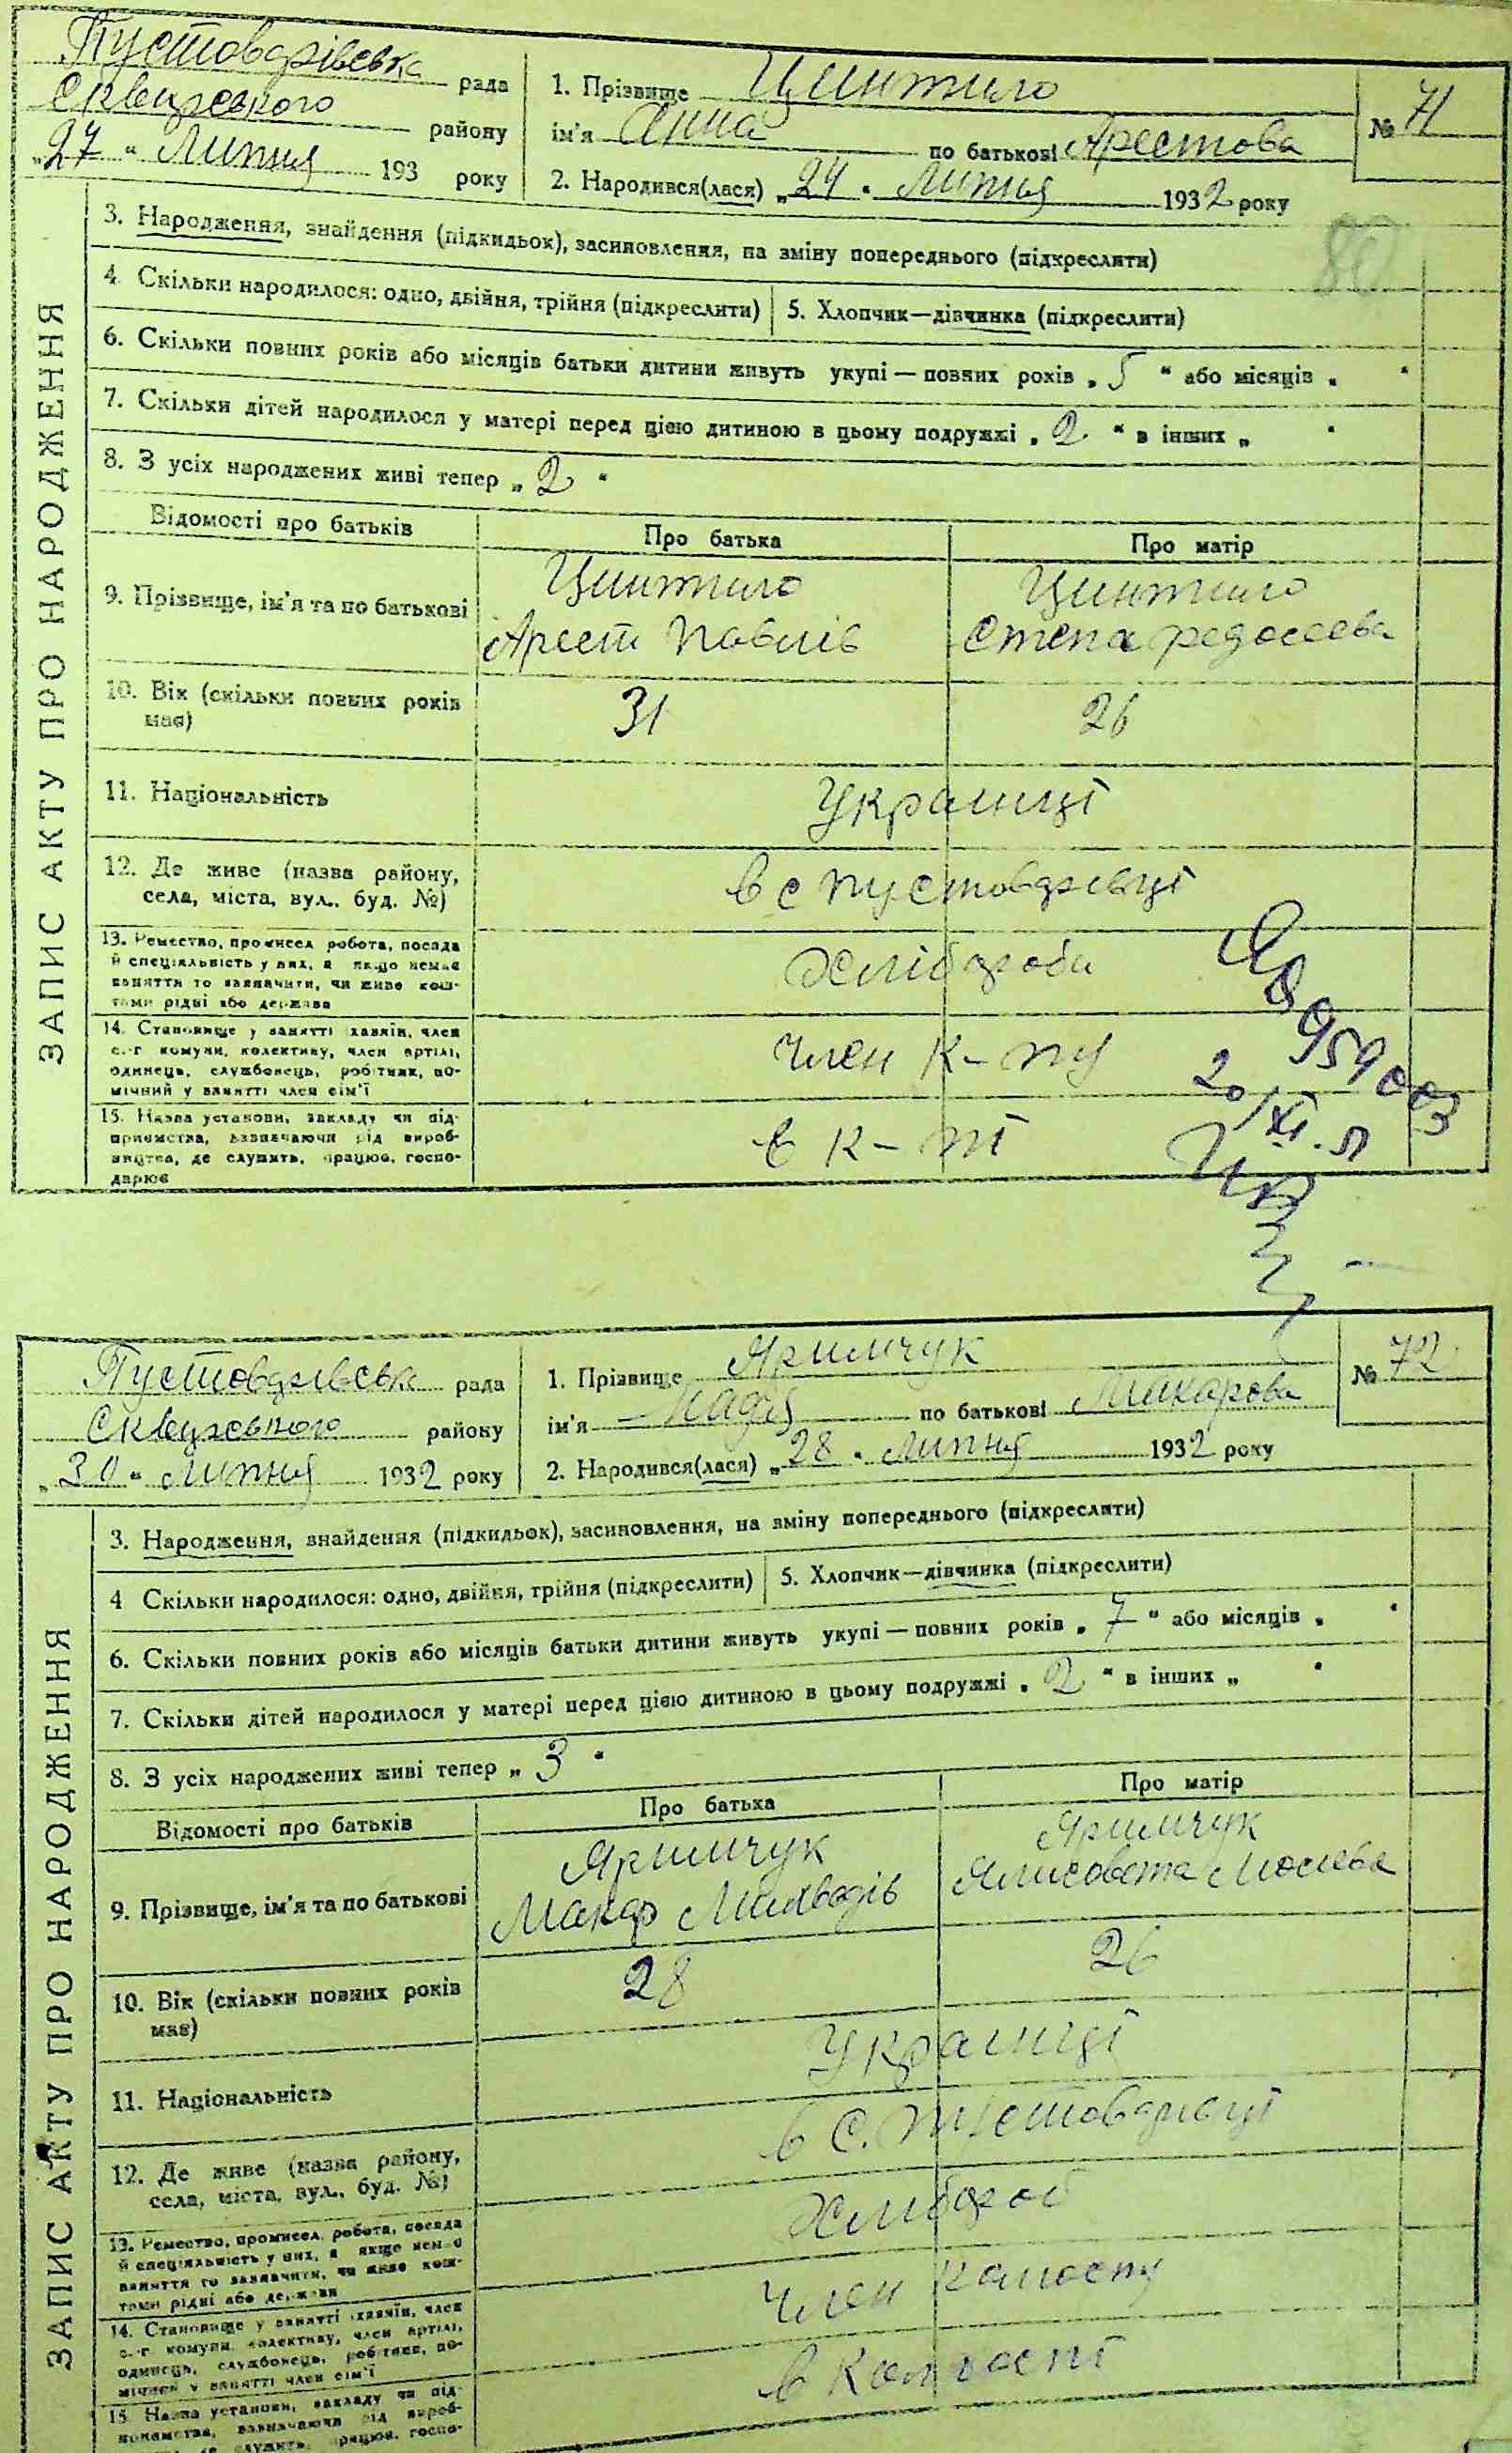 Пустоварівська рада
Сквирського району
„27“ Липня 193 року
1. Прізвище Цинтило
ім'я Анна по батькові Арестова
2. Народився(лася) „24“ Липня 1932 року
№ 71
80
ЗАПИС АКТУ ПРО НАРОДЖЕННЯ
3. Народження, знайдення (підкидьок), засиновлення, на зміну попереднього (підкреслити)
4. Скільки народилося: одно, двійня, трійня (підкреслити) 5. Хлопчик—дівчинка (підкреслити)
6. Скільки повних років або місяців батьки дитини живуть укупі — повних років „5“ або місяців „ “
7. Скільки дітей народилося у матері перед цією дитиною в цьому подружжі „2“ в інших „ “
8. З усіх народжених живі тепер „2“
Відомості про батьків Про батька Про матір
9. Прізвище, ім'я та по батькові
Цинтило Цинтило
Арест Павлів Степа Федосеева
10. Вік (скільки повних років має) 31 26
11. Національність Українці
12. Де живе (назва району, села, міста, вул., буд. №) в с Пустоварівці
13. Ремество, промисел, робота, посада й спеціяльність у них, а якщо немає заняття то зазначити, чи живе коштами рідні або держави Хлібороби
14. Становище у занятті хазяїн, член с.-г комуни, колективу, член артілі, одинець, службовець, робітник, помічний у занятті член сім'ї член к-пу
15. Назва установи, закладу чи підприємства, зазначаючи рід виробництва, де служить, працює, господарює в к-пі
959003
20/XI. 51
Пустоварівська рада
Сквирського району
„30“ Липня 1932 року
1. Прізвище Яримчук
ім'я Надія по батькові Макарова
2. Народився(лася) „28“ Липня 1932 року
№ 72
ЗАПИС АКТУ ПРО НАРОДЖЕННЯ
3. Народження, знайдення (підкидьок), засиновлення, на зміну попереднього (підкреслити)
4 Скільки народилося: одно, двійня, трійня (підкреслити) 5. Хлопчик—дівчинка (підкреслити)
6. Скільки повних років або місяців батьки дитини живуть укупі — повних років „7“ або місяців „ “
7. Скільки дітей народилося у матері перед цією дитиною в цьому подружжі „2“ в інших „ “
8. З усіх народжених живі тепер „3“
Відомості про батьків Про батька Про матір
9. Прізвище, ім'я та по батькові
Яримчук Яримчук
Макар Ялисовета
10. Вік (скільки повних років має) 28 26
11. Національність Українці
12. Де живе (назва району, села, міста, вул., буд. №) в с. Пустоварівці
13. Ремество, промисел, робота, посада й спеціяльність у них, а якщо немає заняття то зазначити, чи живе коштами рідні або держави Хлібороб
14. Становище у занятті хазяїн, член с.-г комуни, колективу, член артілі, одинець, службовець, робітник, помічний у занятті член сім'ї член
15. Назва установи, закладу чи підприємства, зазначаючи рід виробництва, де служить, працює, госпо- в